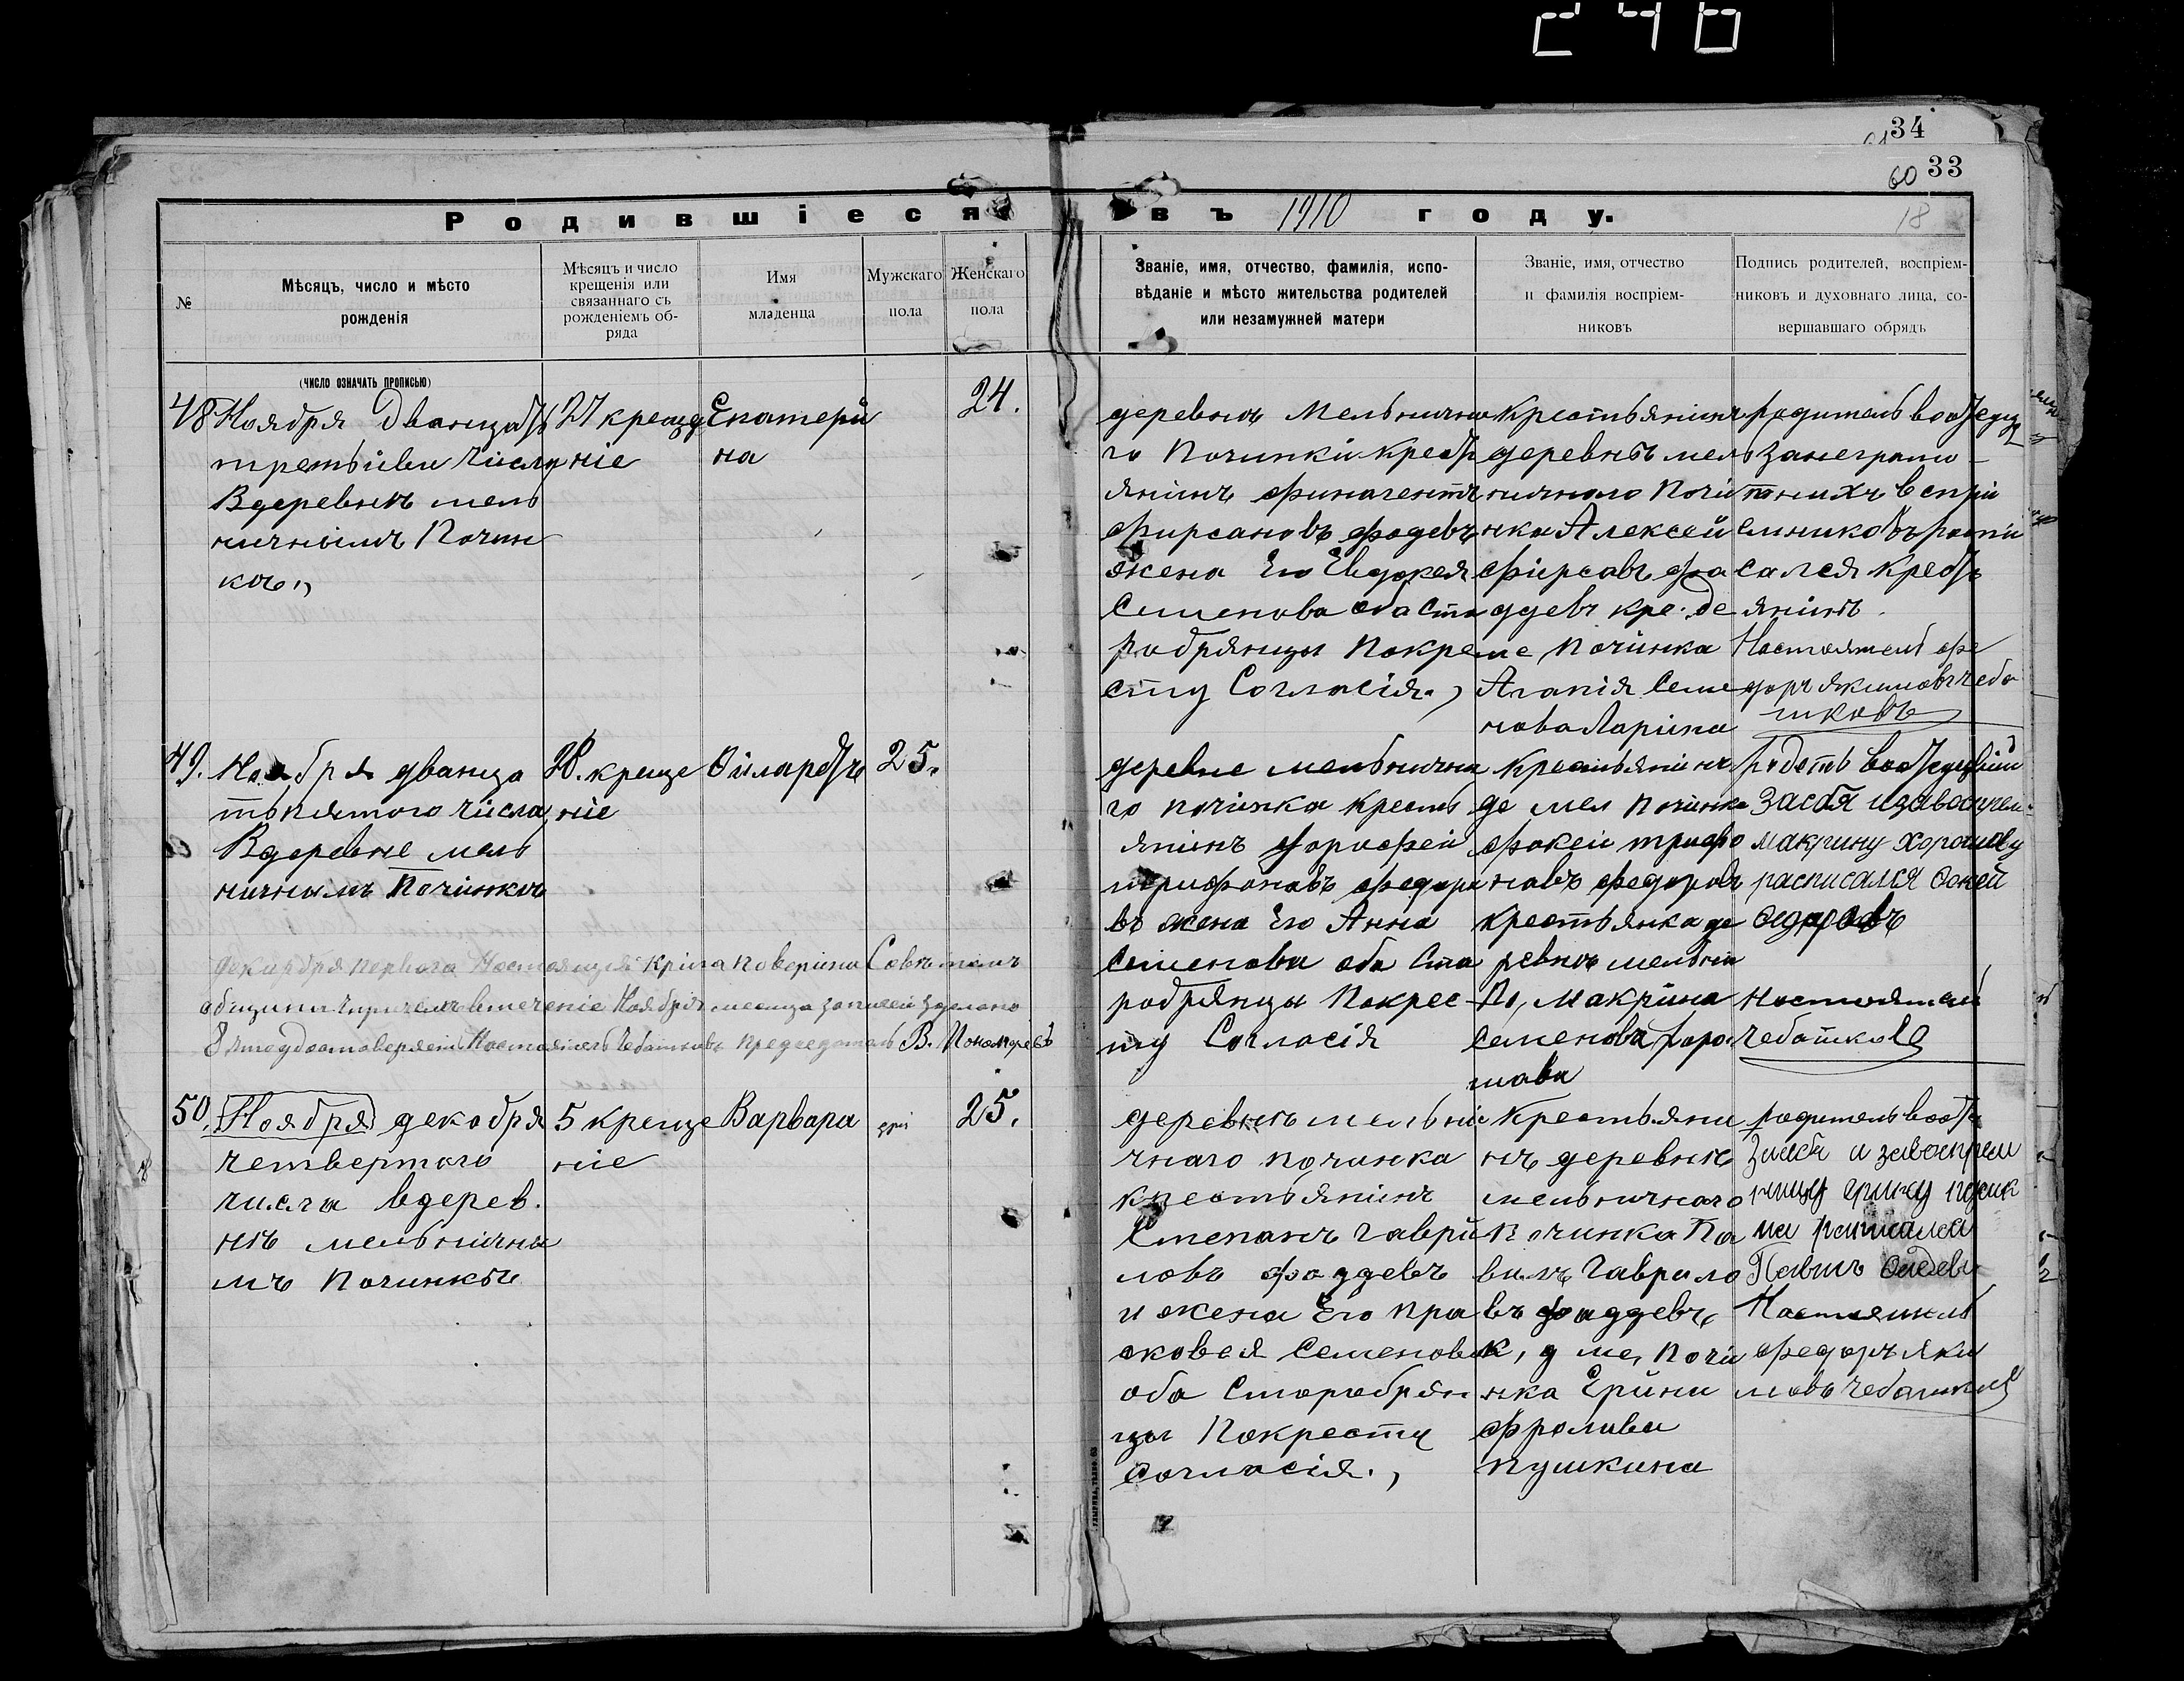 34
60 33
18
Родившіеся въ 1910 году.
№
Мѣсяцъ, число и мѣсто
рожденія
Мѣсяцъ и число
крещенія или
связаннаго съ
рожденіемъ об-
ряда
Имя
младенца
Мужскаго
пола
Женскаго
пола
Званіе, имя, отчество, фамилія, испо-
вѣданіе и мѣсто жительства родителей
или незамужней матери
Званіе, имя, отчество
и фамилія воспріем-
никовъ
Подпись родителей, воспріем-
никовъ и духовнаго лица, со-
вершавшаго обрядъ
(число означать прописью)
48
Ноября Дванцать
третьива числа
Вдеревнѣ мель
ничнымъ Почин
кѣ,,
27 креще
ніе
Екатери
на
24.
деревнѣ Мельнично
го Починки Крест
янинъ
Фирсановъ фадевъ
жена Его Евдокея
Семенова оба Ста
робрянцы Покре
сту Согласія.,
Крестьянинъ
деревнѣ мель
ничнаго Почи
нка Алексей
Фирсавъ фа
ддевъ кре. де
ме Починка
Агапія Семе
нова Ларина
родитель
занеграмо
тнихъ
росписался крест
янинъ.
Настоятель фе
доръ якимовъ Чеба
шковъ
49.
Ноября дванца
тьпятого числа
Вдеревне мель
ничнымъ Починкѣ
28. креще
ніе
25.
деревне мельнична
го починка крест
янинъ дорофей
трифоновъ федоро
въ жена Его Анна
Семенова оба Ста
робрянцы Покрес
ту Согласія
Крестьянинъ
де мел Починка
фокеи трифо
новъ федоровъ
крестьянка де
ревнѣ мельни
По, Макрина
Семенова Хоро
шава
макрину Хорошаву
расписался
Настоятель
Чебашковъ
декабря перваго Настоящея Крига поверина Совѣтомъ
общины причемъ втеченіе Ноября месяца записей зделано
8 что удостоверяемъ Настоятель Чебашковъ председатель В. Пономаревъ
50.
Ноября декобря
четвертого
числа вдерев.
нѣ мельнична
мъ Починкѣ
5 креще
ніе
Варвара
25.
деревнѣ мельни
чнаго починка
крестьянинъ
Степанъ Гаври
ловъ фаддевъ
и жена Его пра
сковея Семенова
оба Старобрян
цы Покресту
согласія.,
Крестьяни
нъ деревнѣ
мельничнаго
Починка Па
велъ Гаврило
въ фаддевъ,
К, д ме, Почи
нка Ерина
фролова
пушкина
родитель
росписался
Павелъ
Настоятель
федоръ яки
мовъ Чебашковъ